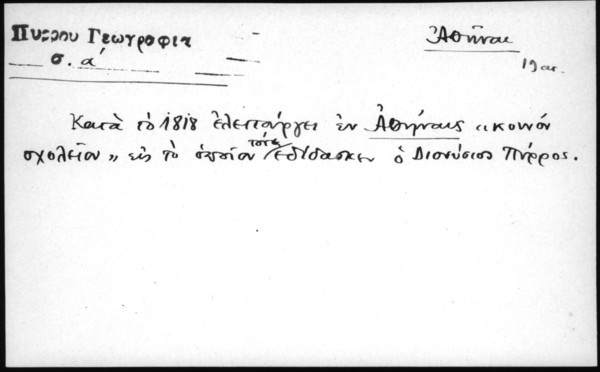 Πύρρου Γεωγραφία
σ. α'
Ἀθῆναι
19 αι.
Κατὰ τὸ 1818 ἐλειτούργει ἐν Ἀθήναις «κοινόν
σχολεῖον» εἰς τὸ ὁποῖον τότε ἐδίδασκεν ὁ Διονύσιος Πύρρος.